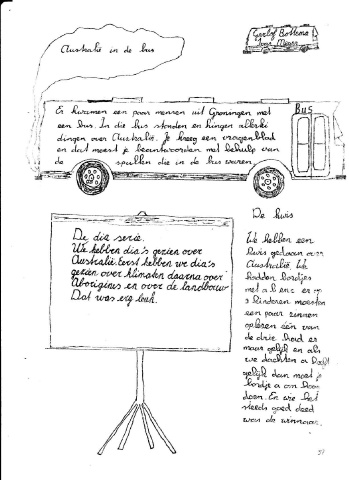 Australië in de bus
Gerlof Bottema
Joas Meaer
Bus
Er kwamen een paar mensen uit Groningen met
een bus. In die bus stonden en hingen allerlei
dingen over Australië. Je kreeg een vragenblad
en dat moest je beantwoorden met behulp van
de spullen die in de bus waren.
De dia serie.
We hebben dia's gezien over
Australië. Eerst hebben we dia's
gezien over klimaten daarna over
Aboriginus en over de landbouw
Dat was erg leuk.
De kwis
We hebben een
kwis gedaan over
Australië. We
hadden bordjes
met a b en c er op
3 kinderen moesten
een paar zinnen
oplezen één van
de drie had er
maar gelijk en als
we dachten a heeft
gelijk dan moet je
bordje a om hoog
doen. En wie het
steeds goed deed
was de winnaar.